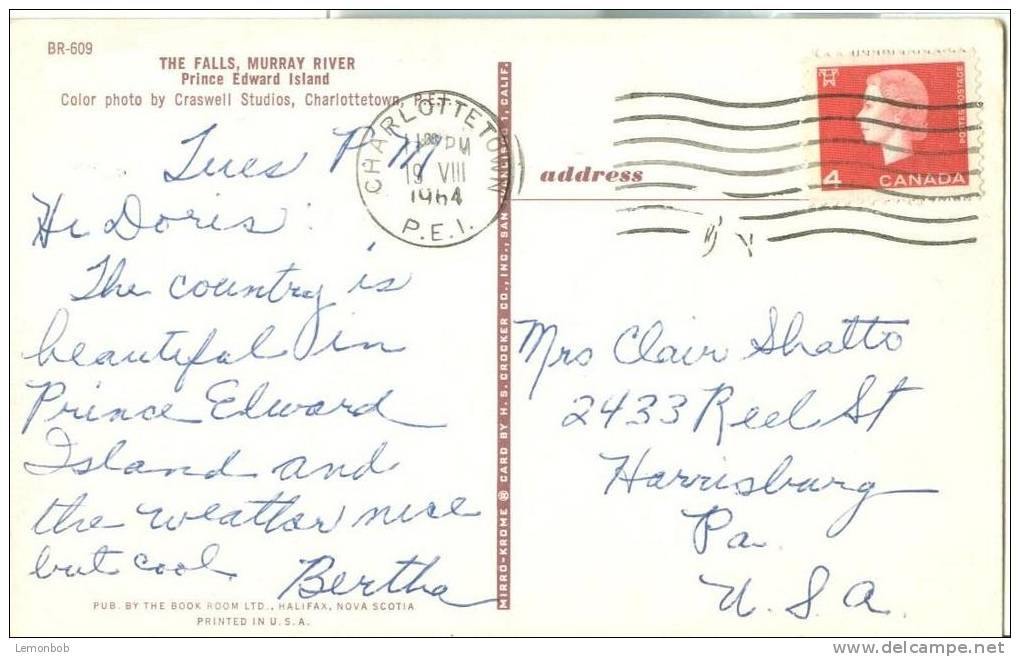 BR-609
THE FALLS, MURRAY RIVER
Prince Edward Island
Color photo by Craswell Studios, Charlottetown, P.E.I.
Tues PM
Hi Doris:
The country is
beautiful in
Prince Edward
Island and
the weather nice
but cool.
Bertha
PUB. BY THE BOOK ROOM LTD., HALIFAX, NOVA SCOTIA
PRINTED IN U.S.A.
MIRRO-KROME ® CARD BY H. S. CROCKER CO., INC., SAN FRANCISCO 1, CALIF.
CHARLOTTETOWN
PM
19 VIII
1964
P.E.I.
address
4
CANADA
POSTES POSTAGE
Mrs Clair Shatto
2433 Reel St
Harrisburg
Pa.
U.S.A.
Lemonbob
delcampe.net